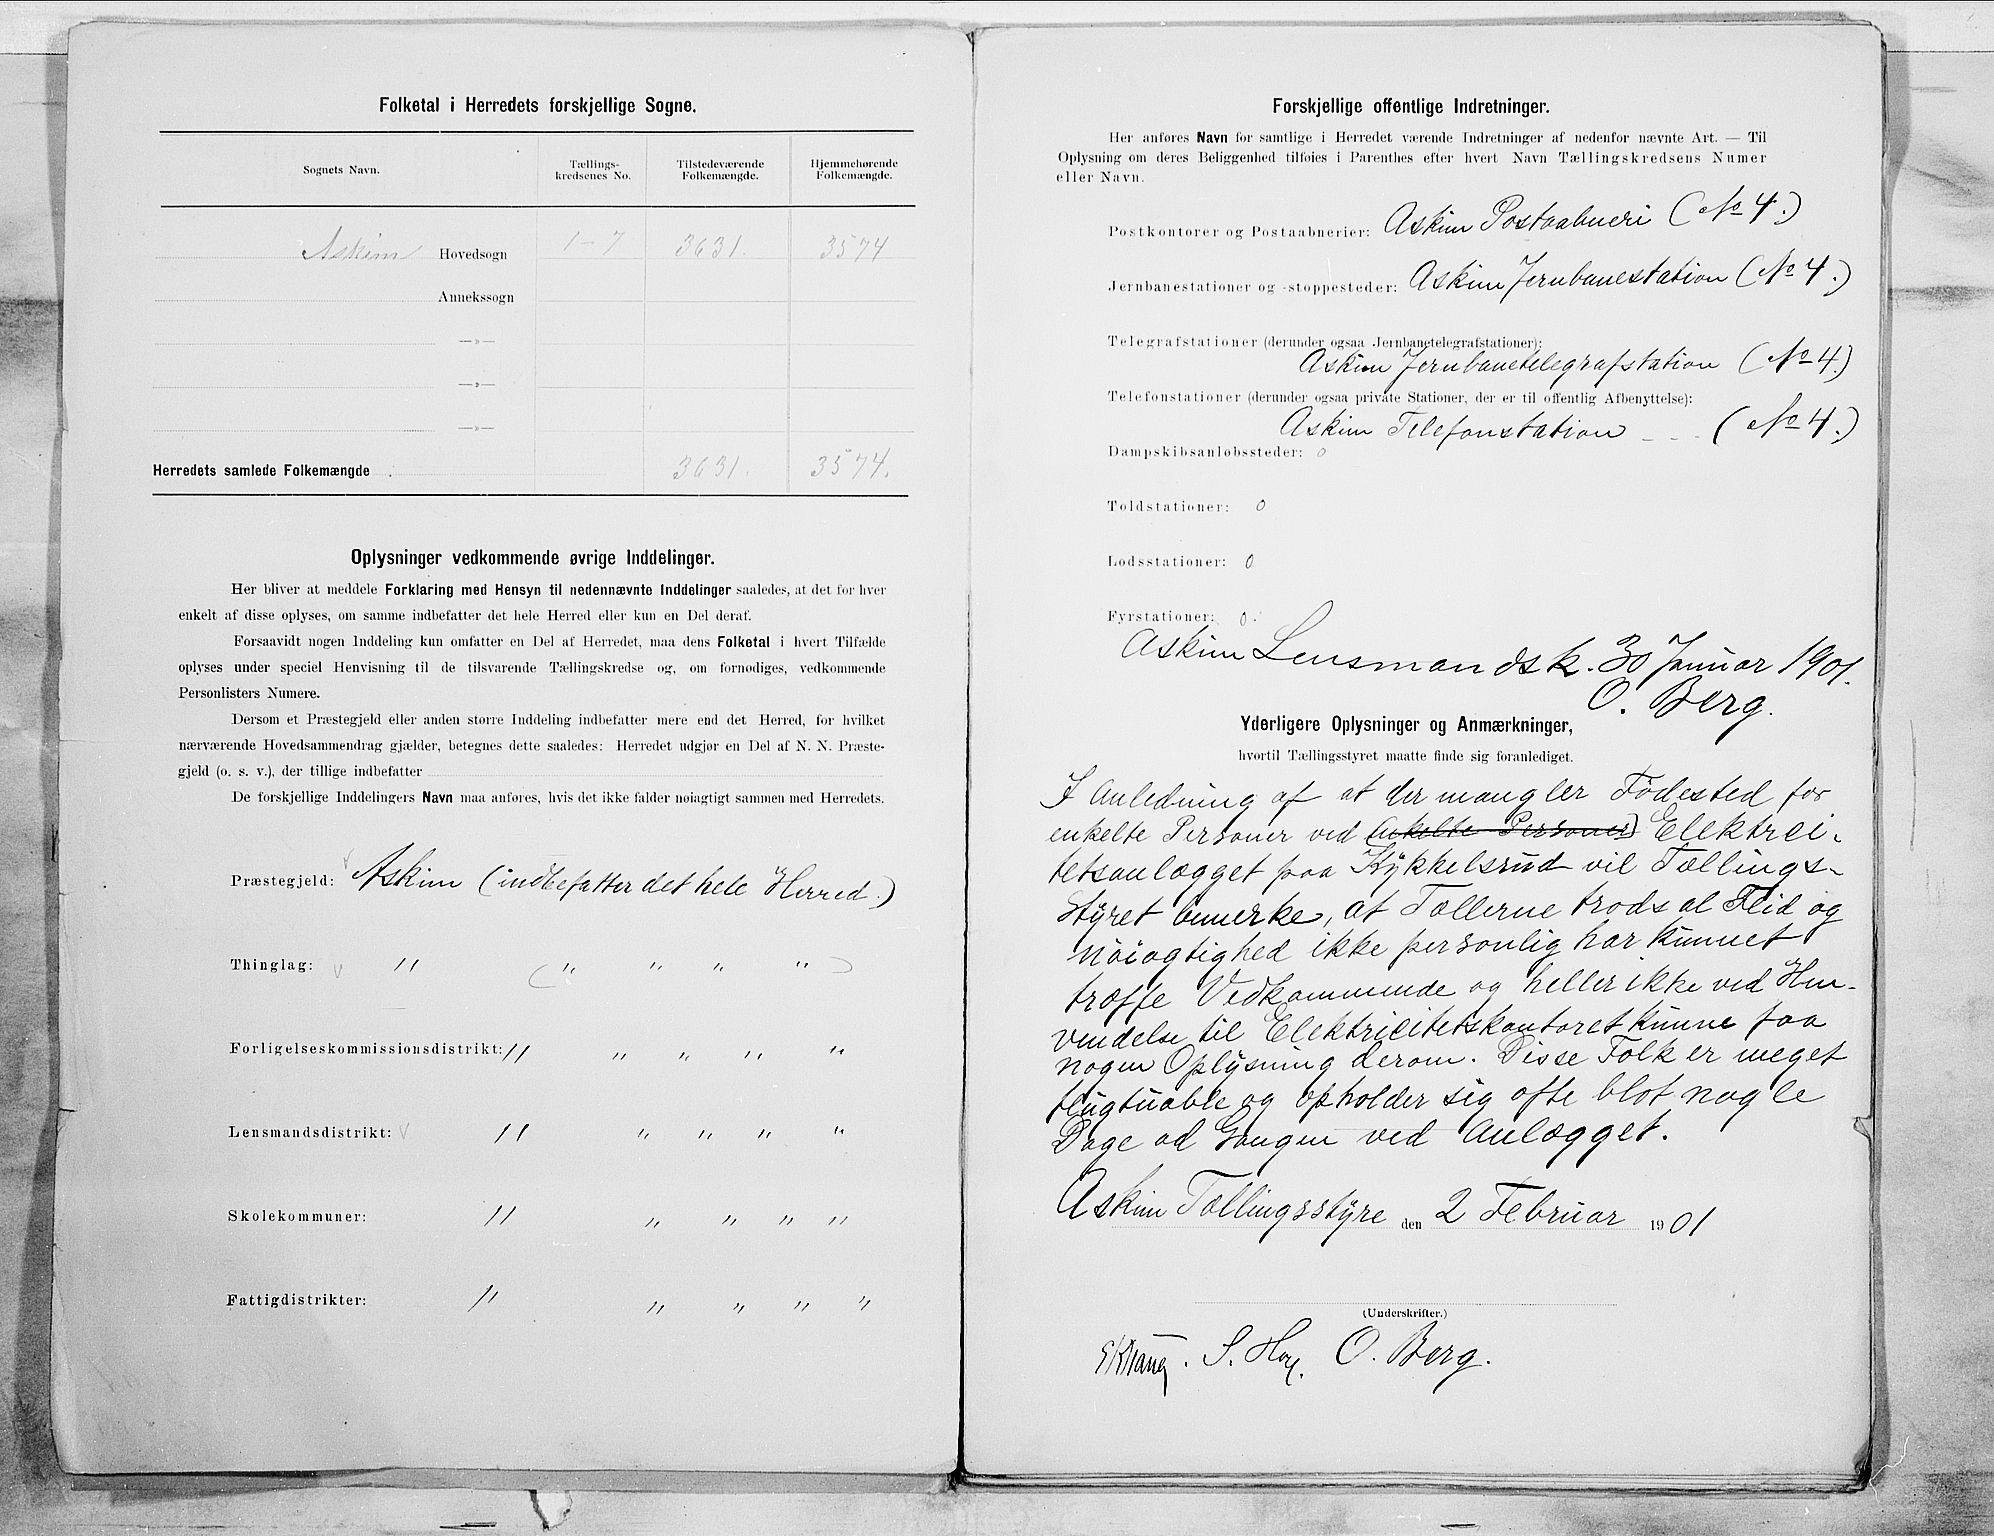 Folketal i Herredets forskjellige Sogne.
Sognets Navn.
Tællings-
kredsenes No.
Tilstedeværende
Folkemængde.
Hjemmehørende
Folkemængde.
Askim Hovedsogn 1-7 3631. 3574
Annekssogn
—»—
—»—
—»—
Herredets samlede Folkemængde 3631. 3574.
Oplysninger vedkommende øvrige Inddelinger.
Her bliver at meddele Forklaring med Hensyn til nedennævnte Inddelinger saaledes, at det for hver
enkelt af disse oplyses, om samme indbefatter det hele Herred eller kun en Del deraf.
Forsaavidt nogen Inddeling kun omfatter en Del af Herredet, maa dens Folketal i hvert Tilfælde
oplyses under speciel Henvisning til de tilsvarende Tællingskredse og, om fornødiges, vedkommende
Personlisters Numere.
Dersom et Præstegjeld eller anden større Inddeling indbefatter mere end det Herred, for hvilket
nærværende Hovedsammendrag gjælder, betegnes dette saaledes: Herredet udgjør en Del af N. N. Præste-
gjeld (o. s. v.), der tillige indbefatter
De forskjellige Inddelingers Navn maa anføres, hvis det ikke falder nøiagtigt sammen med Herredets.
Præstegjeld: Askim (indbefatter det hele Herred.)
Thinglag: " ( " " " " )
Forligelseskommissionsdistrikt: " " " " "
Lensmandsdistrikt: " " " " "
Skolekommuner: " " " " "
Fattigdistrikter: " " " " "
Forskjellige offentlige Indretninger.
Her anføres Navn for samtlige i Herredet værende Indretninger af nedenfor nævnte Art. — Til
Oplysning om deres Beliggenhed tilføies i Parenthes efter hvert Navn Tællingskredsens Numer
eller Navn.
Postkontorer og Postaabnerier: Askim Postaabneri (No 4.)
Jernbanestationer og -stoppesteder: Askim Jernbanestation (No 4.)
Telegrafstationer (derunder ogsaa Jernbanetelegrafstationer):
Askim Jernbanetelegrafstation (No 4.)
Telefonstationer (derunder ogsaa private Stationer, der er til offentlig Afbenyttelse):
Askim Telefonstation - - - (No 4.)
Dampskibsanløbssteder: 0
Toldstationer: 0
Lodsstationer: 0
Fyrstationer: 0.
Askim Lensmandsk. 30 Januar 1901.
O. Berg.
Yderligere Oplysninger og Anmærkninger,
hvortil Tællingsstyret maatte finde sig foranlediget.
I Anledning af at der mangler Fødested for
enkelte Personer ved (enkelte Personer) Elektrici-
tetsanlægget paa Kykkelsrud vil Tællings-
Styret bemerke, at Tællerne trods al Flid og
Nøiagtighed ikke personlig har kunnet
træffe Vedkommende og heller ikke ved Hen-
vendelse til Elektricitetskontoret kunne faa
nogen Oplysning derom. Disse Folk er meget
flugtuable og opholder sig ofte blot nogle
Dage ad Gangen ved Anlægget.
Askim Tællingsstyre den 2 Februar 1901
(Underskrifter.)
S. O. Berg.